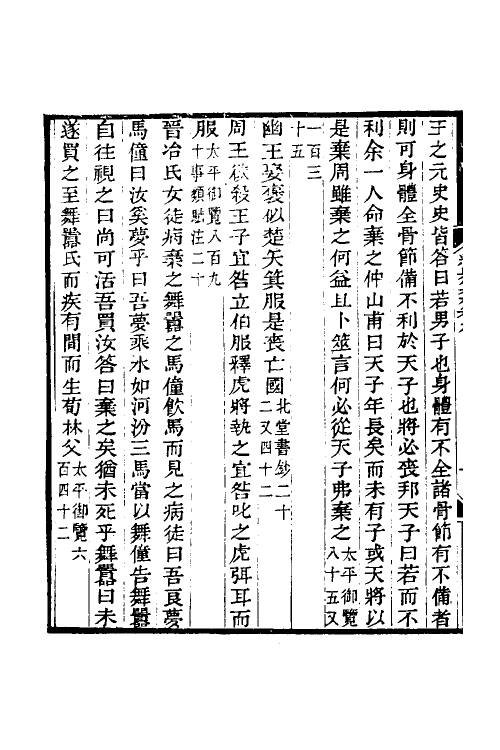 王之元史史皆答曰若男子也身體有不全諸骨節有不備者
則可身體全骨節備不利於天子也將必喪邦天子曰若而不
利余一人命棄之仲山甫曰天子年長矣而未有子或天將以
是棄周雖棄之何益且卜筮言何必從天子弗棄之太平御覽八十五又
一百三十五
幽王娶褒似楚矢箕服是喪亡國北堂書鈔二十二又四十二
周王欲殺王子宜咎立伯服釋虎將執之宜咎叱之虎弭耳而
服太平御覽八百九十事類賦注二十
晉冶氏女徒病棄之舞嚚之馬僮飲馬而見之病徒曰吾良夢
馬僮曰汝奚夢乎曰吾夢乘水如河汾三馬當以舞僮告舞嚚
自往視之曰尚可活吾買汝答曰棄之矣猶未死乎舞嚚曰未
遂買之至舞嚚氏而疾有間而生荀林父太平御覽六百四十二